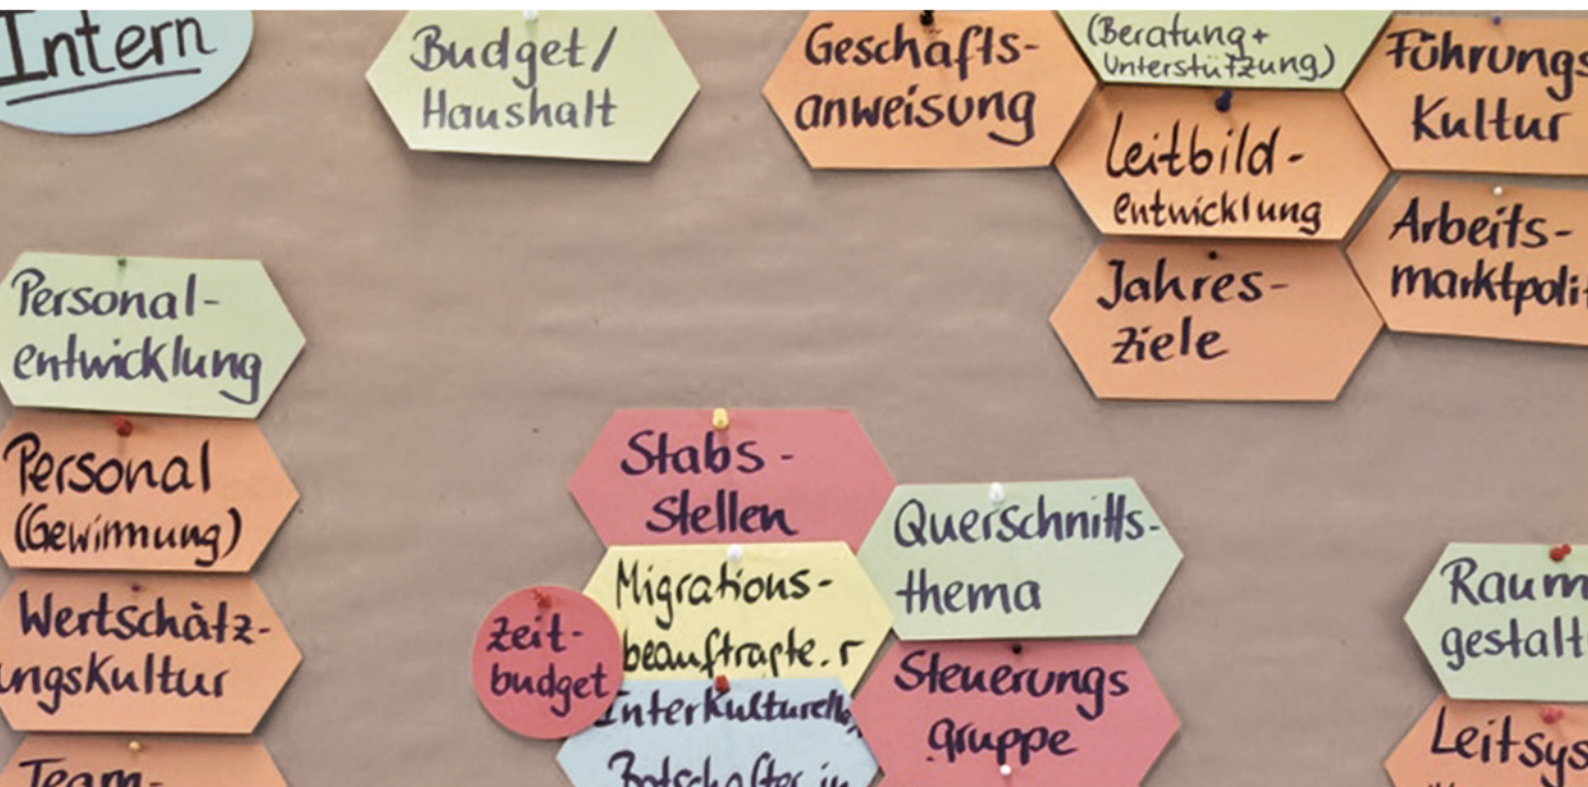 Intern
Budget/
Haushalt
Geschäfts-
anweisung
(Beratung +
Unterstützung)
Führungs
Kultur
Leitbild-
entwicklung
Arbeits-
marktpoli
Jahres-
ziele
Personal-
entwicklung
Personal
(Gewinnung)
Wertschätz-
ungskultur
Team-
Stabs-
stellen
Migrations-
beauftragte.r
Zeit-
budget
Interkulturelle
Botschafter.in
Querschnitts-
thema
Steuerungs
gruppe
Raum
gestalt
Leitsys